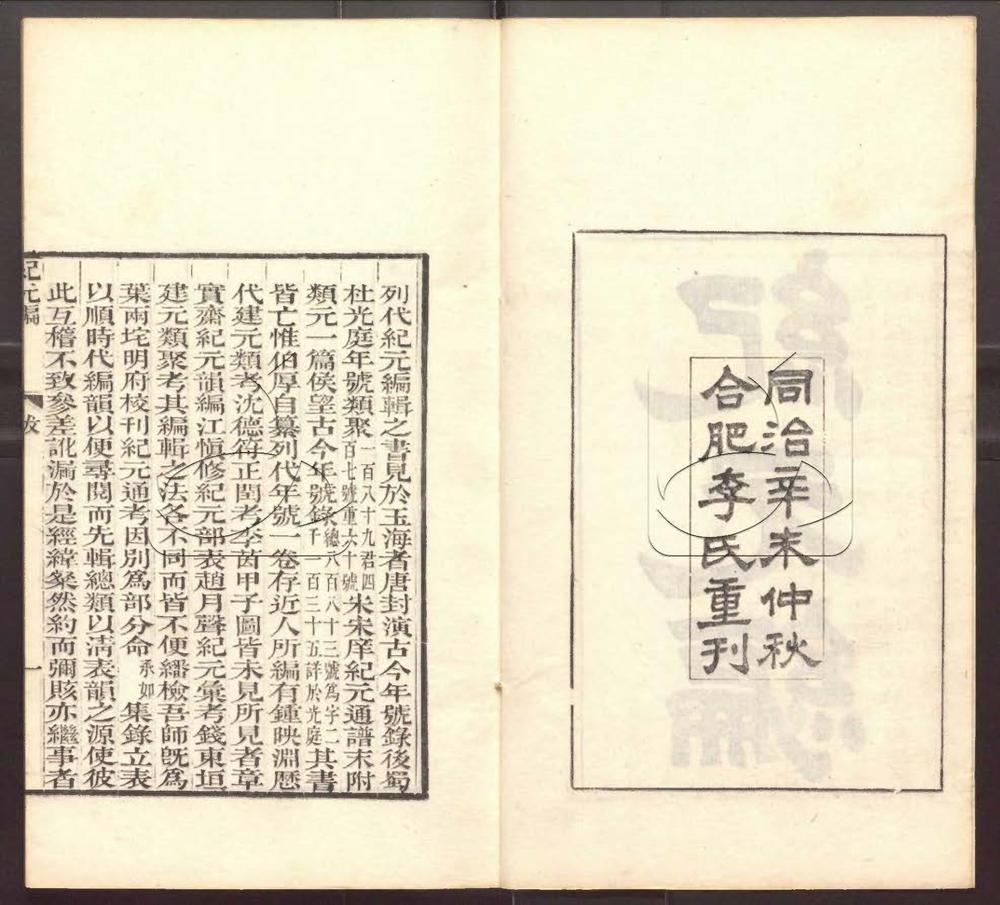 同治辛未仲秋
合肥李氏重刊
列代紀元編輯之書見於玉海者唐封演古今年號錄後蜀
杜光庭年號類聚一百八十九君四百七號重六十號宋宋庠紀元通譜末附
類元一篇侯望古今年號錄總八百八十三號爲字二千一百三十五詳於光庭其書
皆亡惟伯厚自纂列代年號一卷存近人所編有鍾映淵歷
代建元類考沈德符正閏考李茵甲子圖皆未見所見者章
實齋紀元韻編江愼修紀元部表趙月聲紀元彙考錢東垣
建元類聚考其編輯之法各不同而皆不便繙檢吾師旣爲
葉兩垞明府校刊紀元通考因別爲部分命承如集錄立表
以順時代編韻以便尋閱而先輯總類以淸表韻之源使彼
此互稽不致參差訛漏於是經緯粲然約而彌賅亦繼事者
紀元編
一